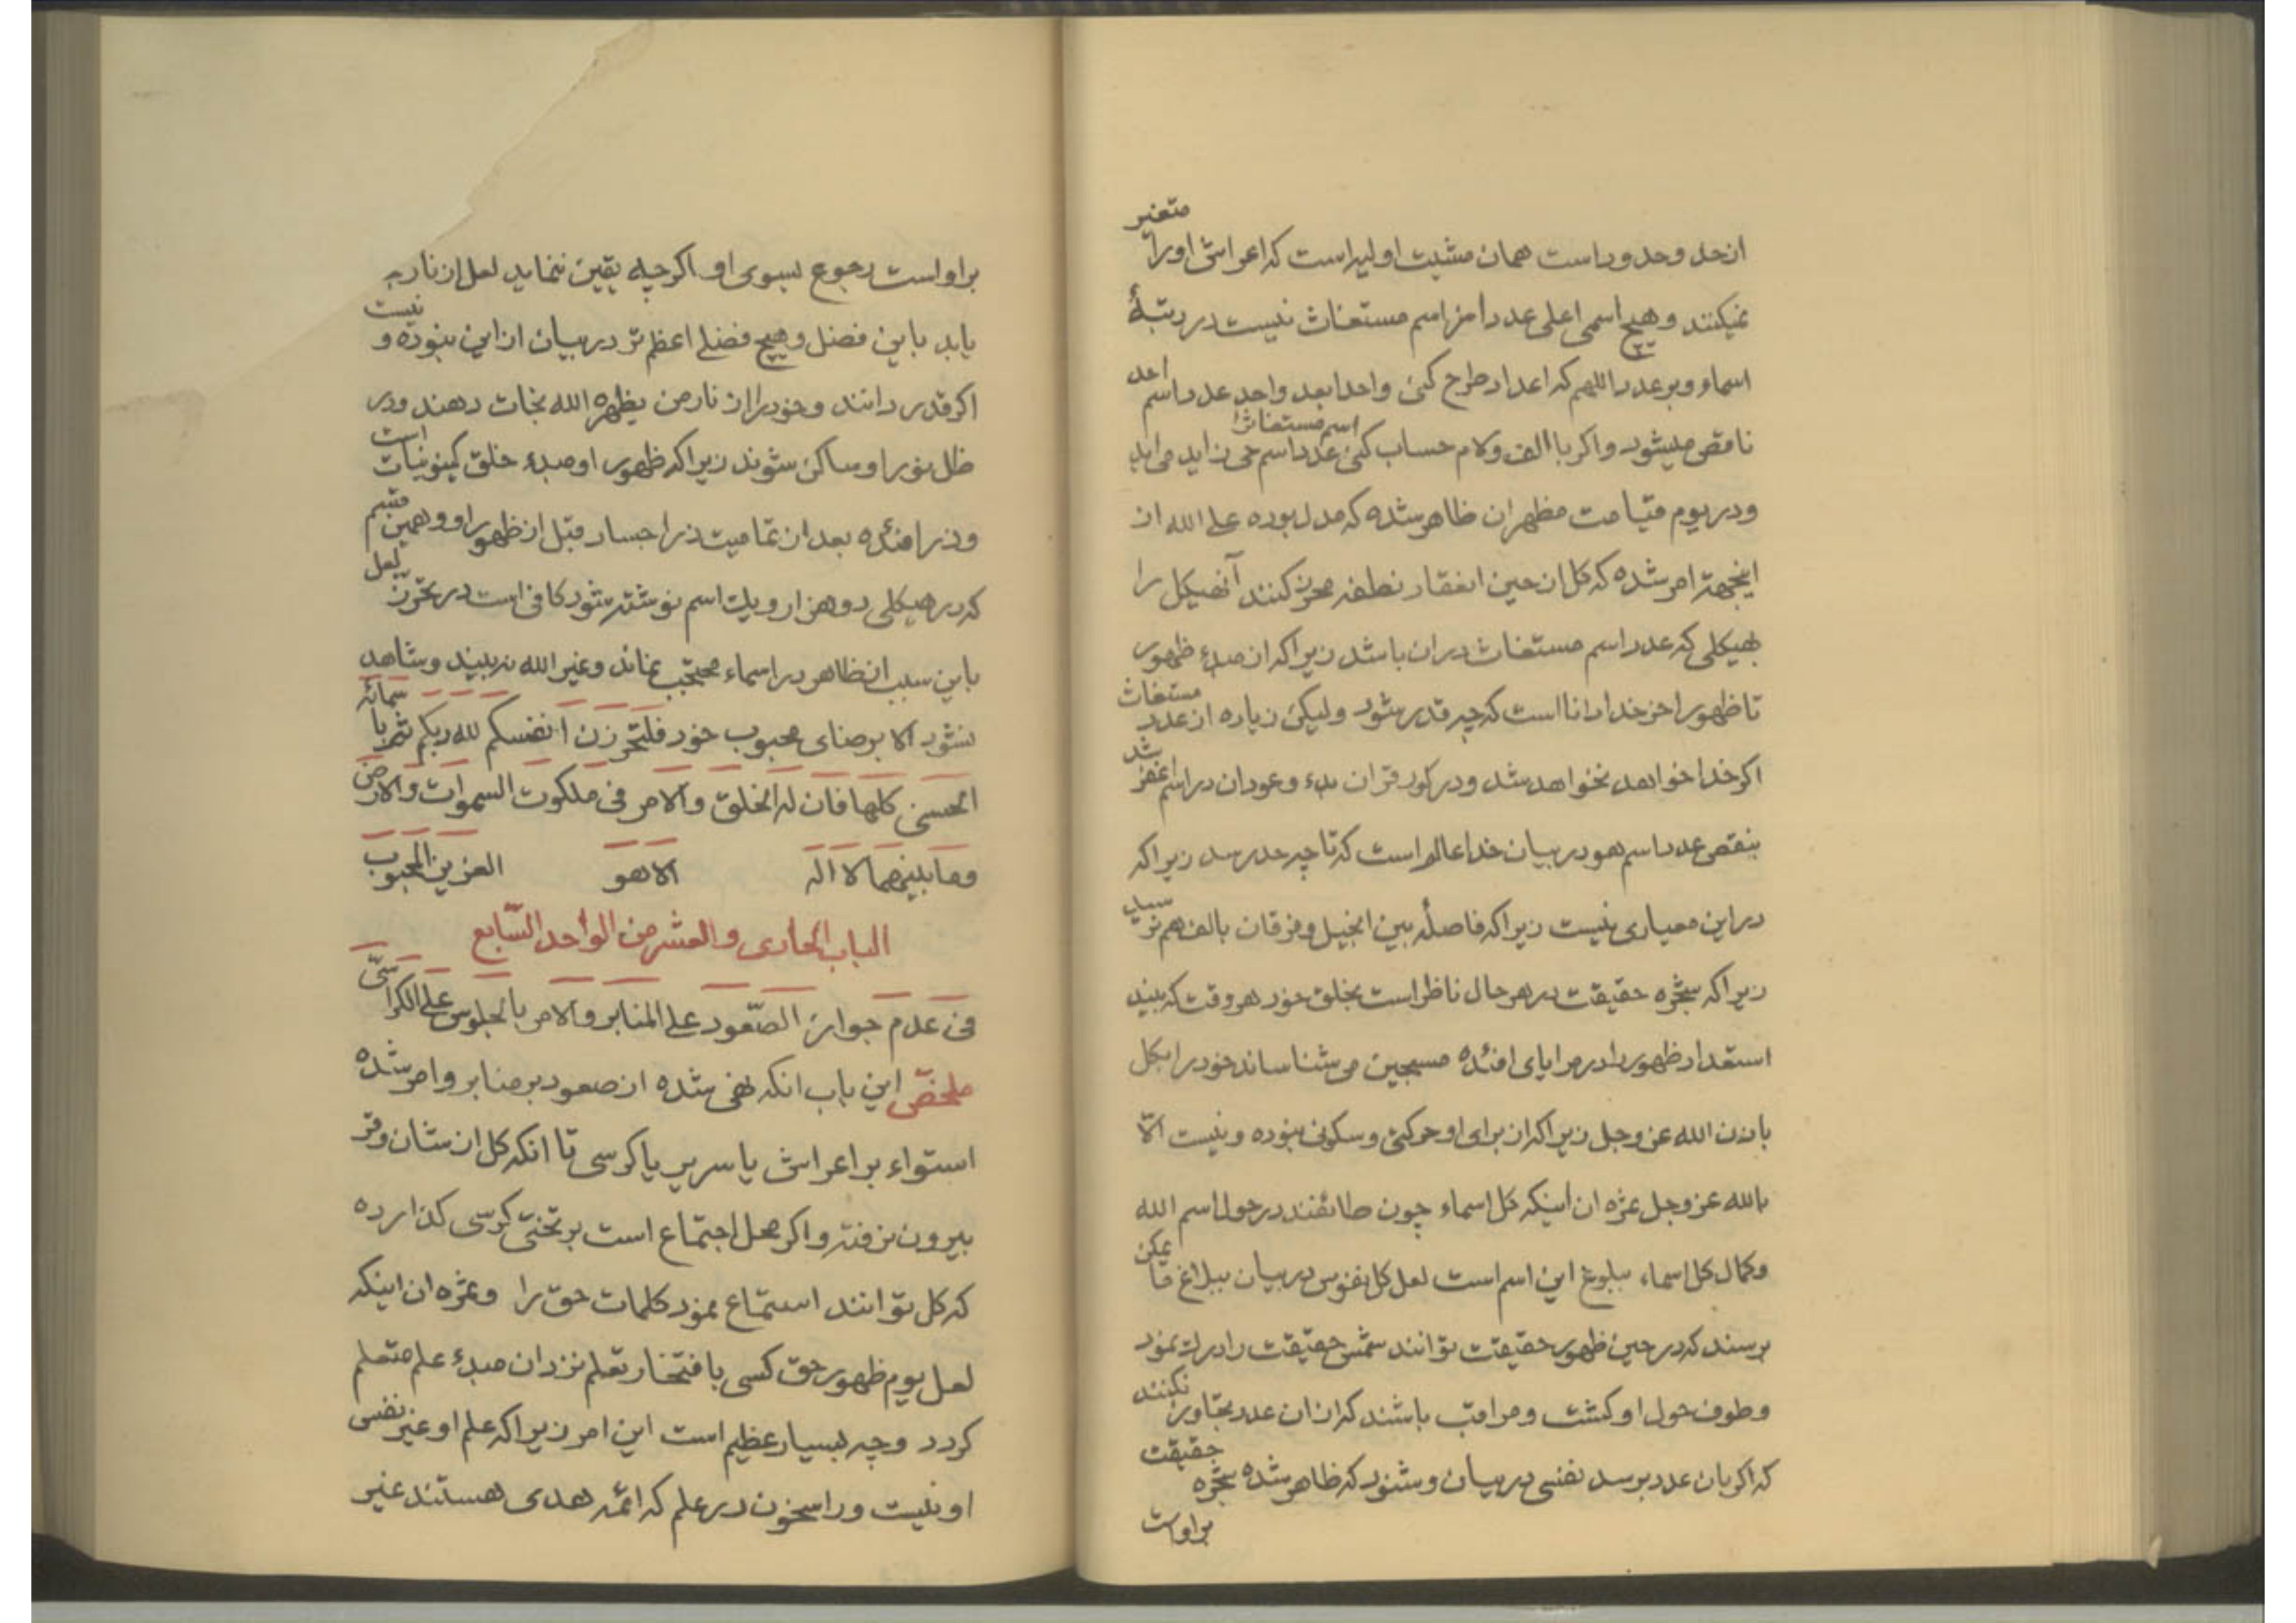 ان حل وحد و راست همان مشیت اولیه است که اعراش اورا متغیر
نمیکنند و هیچ اسمی اعلی عددا من اسم مستغاث نیست در رتبهٔ
اسماء و بر عدد اللهم که اعداد طرح کنی واحدا بعد واحد عدد اسم احد
ناقص میشود و اکر با الف و لام حساب کنی اسم مستغاث را عدد اسم حی زاید می اید
و در یوم قیامت مظهر ان ظاهر شده که مدل بوده علی الله از
اینجهة امر شده که کل از حین انعقاد نطفه محرز کنند آنهیکل را
بهیکلی که عدد اسم مستغاث در ان باشد زیرا که از مبدء ظهور
تا ظهور اخر خدا دانا است که چه قدر شود و لیکن زیاده از عدد مستغاث
اکر خدا خواهد نخواهد شد و در کور قران بدء و عود ان در اسم اغفر شد
بنقص عدد اسم هو در بیان خدا عالم است که تا چه حد رسد زیرا که
در این معیاری نیست زیرا که فاصله بین انجیل و فرقان بالف هم نرسید
زیرا که شجره حقیقت در هر حال ناظر است بخلق خود هر وقت که بیند
استعداد ظهور را در مرایای افئده مسبحین می شناساند خود را بکل
باذن الله عز وجل زیرا که از برای او حرکتی و سکونی نبوده و نیست الا
بالله عز وجل ثمره ان اینکه کل اسماء چون طائفند در حول اسم الله
و کمال کل اسماء ببلوغ این اسم است لعل کل نفوس در بیان ببلاغ ما یمکن
برسند که در حین ظهور حقیقت توانند شمس حقیقت را درك نمود
و طوف حول او کشت و مراقب باشند که از ان عدد تجاوز نکنند
که اکر بان عدد برسد نفسی در بیان و شنود که ظاهر شده شجره حقیقت
بر اوست
بر او است رجوع بسوی او اکر چه یقین ننماید لعل از نار
یابد باین فضل و هیچ فضلی اعظم تر در بیان از این نبوده و نیست
اکر قدر دانند و خود را از نار من یظهره الله نجات دهند و در
ظل نور او ساکن شوند زیرا که ظهور او مبدء خلق کینونیات است
و ذرا فئده بعد از تمامیت ذرا جساد قبل از ظهور او و همین قسم
که در هیکلی دو هزار و یك اسم نوشته شود کافی است در تحرز لعل
باین سبب از ظاهر در اسماء محتجب نماند و غیر الله نه بیند و شاهد
نشود الا برضای محبوب خود فلتحرزن انفسکم لله ربکم ثم باسمائه
الحسنی کلها فان له الخلق و الامر فی ملکوت السموات و الارض
و ما بینهما لا اله الا هو العزیز المحبوب
الباب الحادی و العشر من الواحد السّابع
فی عدم جواز الصّعود علی المنابر و الامر بالجلوس علی الکراسیّ
ملخصّ این باب انکه نهی شده از صعود بر منابر و امر شده
استواء بر اعراش یا سریر یا کرسی تا انکه کل از شان وقر
بیرون نرفته و اکر محل اجتماع است بر تختی کرسی کذارده
که کل توانند استماع نمود کلمات حق را و ثمره ان اینکه
لعل یوم ظهور حق کسی بافتخار تعلم نزد ان مبدء علم متعلم
کردد و چه بسیار عظیم است این امر زیرا که علم او غیر نفس
او نیست و راسخون در علم که ائمه هدی هستند غیر